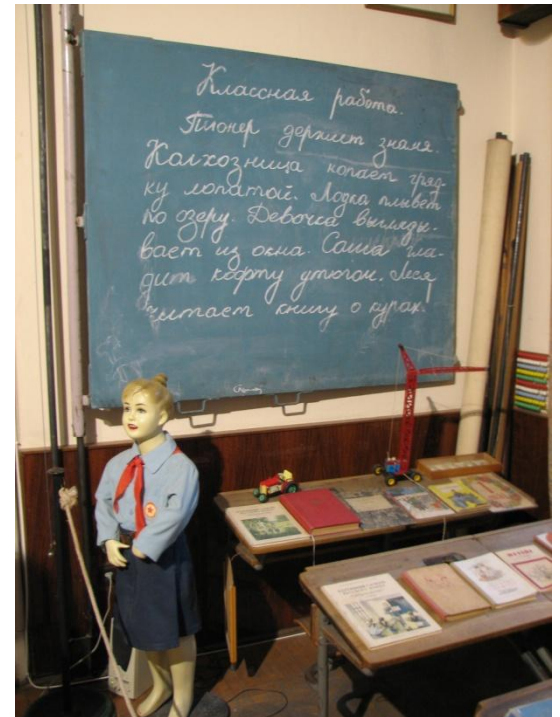 Классная работа.
Пионер держит знамя.
Колхозница копает гряд-
ку лопатой. Лодка плывет
по озеру. Девочка выгляды-
вает из окна. Саша гла-
дит кофту утюгом. Люся
читает книгу о курах.